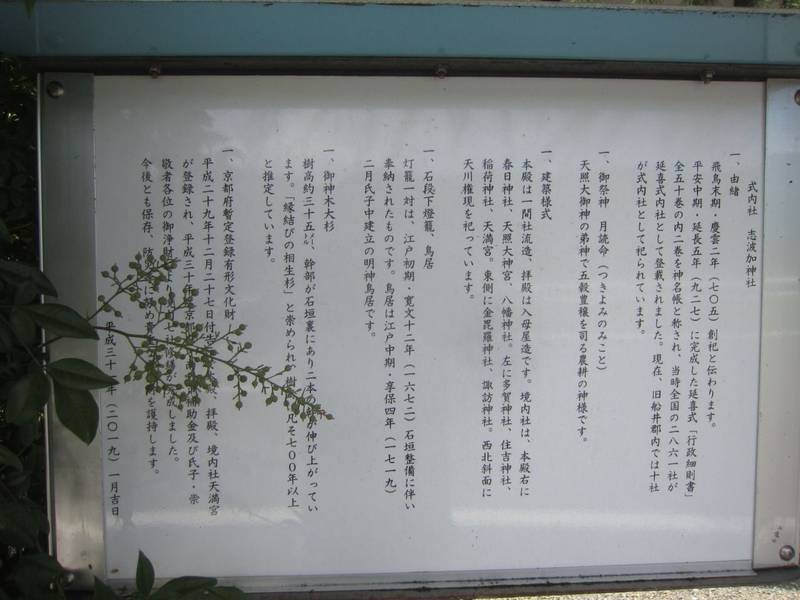 式内社 志波加神社
一、由緒
飛鳥末期・慶雲二年(七〇五)創祀と伝わります。
平安中期・延長五年(九二七)に完成した延喜式「行政細則書」
全五十巻の内二巻を神名帳と称され、当時全国の二八六一社が
延喜式内社として登載されました。現在、旧船井郡内では十社
が式内社として祀られています。
一、御祭神 月読命(つきよみのみこと)
天照大御神の弟神で五穀豊穣を司る農耕の神様です。
一、建築様式
本殿は一間社流造、拝殿は入母屋造です。境内社は、本殿右に
春日神社、天照大神宮、八幡神社。左に多賀神社、住吉神社、
稲荷神社、天満宮。東側に金毘羅神社、諏訪神社。西北斜面に
天川権現を祀っています。
一、石段下燈籠、鳥居
灯籠一対は、江戸初期・寛文十二年(一六七二)石垣整備に伴い
奉納されたものです。鳥居は江戸中期・享保四年(一七一九)
二月氏子中建立の明神鳥居です。
一、御神木大杉
樹高約三十五㍍、幹部が石垣裏にあり二本の 伸び上がってい
ます。「縁結びの相生杉」と崇められ、樹 凡そ七〇〇年以上
と推定しています。
一、京都府暫定登録有形文化財
平成二十九年十二月二十七日付 、拝殿、境内社天満宮
が登録され、平成三十年 京都 補助金及び氏子・崇
敬者各位の御浄財 成しました。
今後とも保存、 め貴 を護持します。
平成三十 年(二〇一九)一月吉日